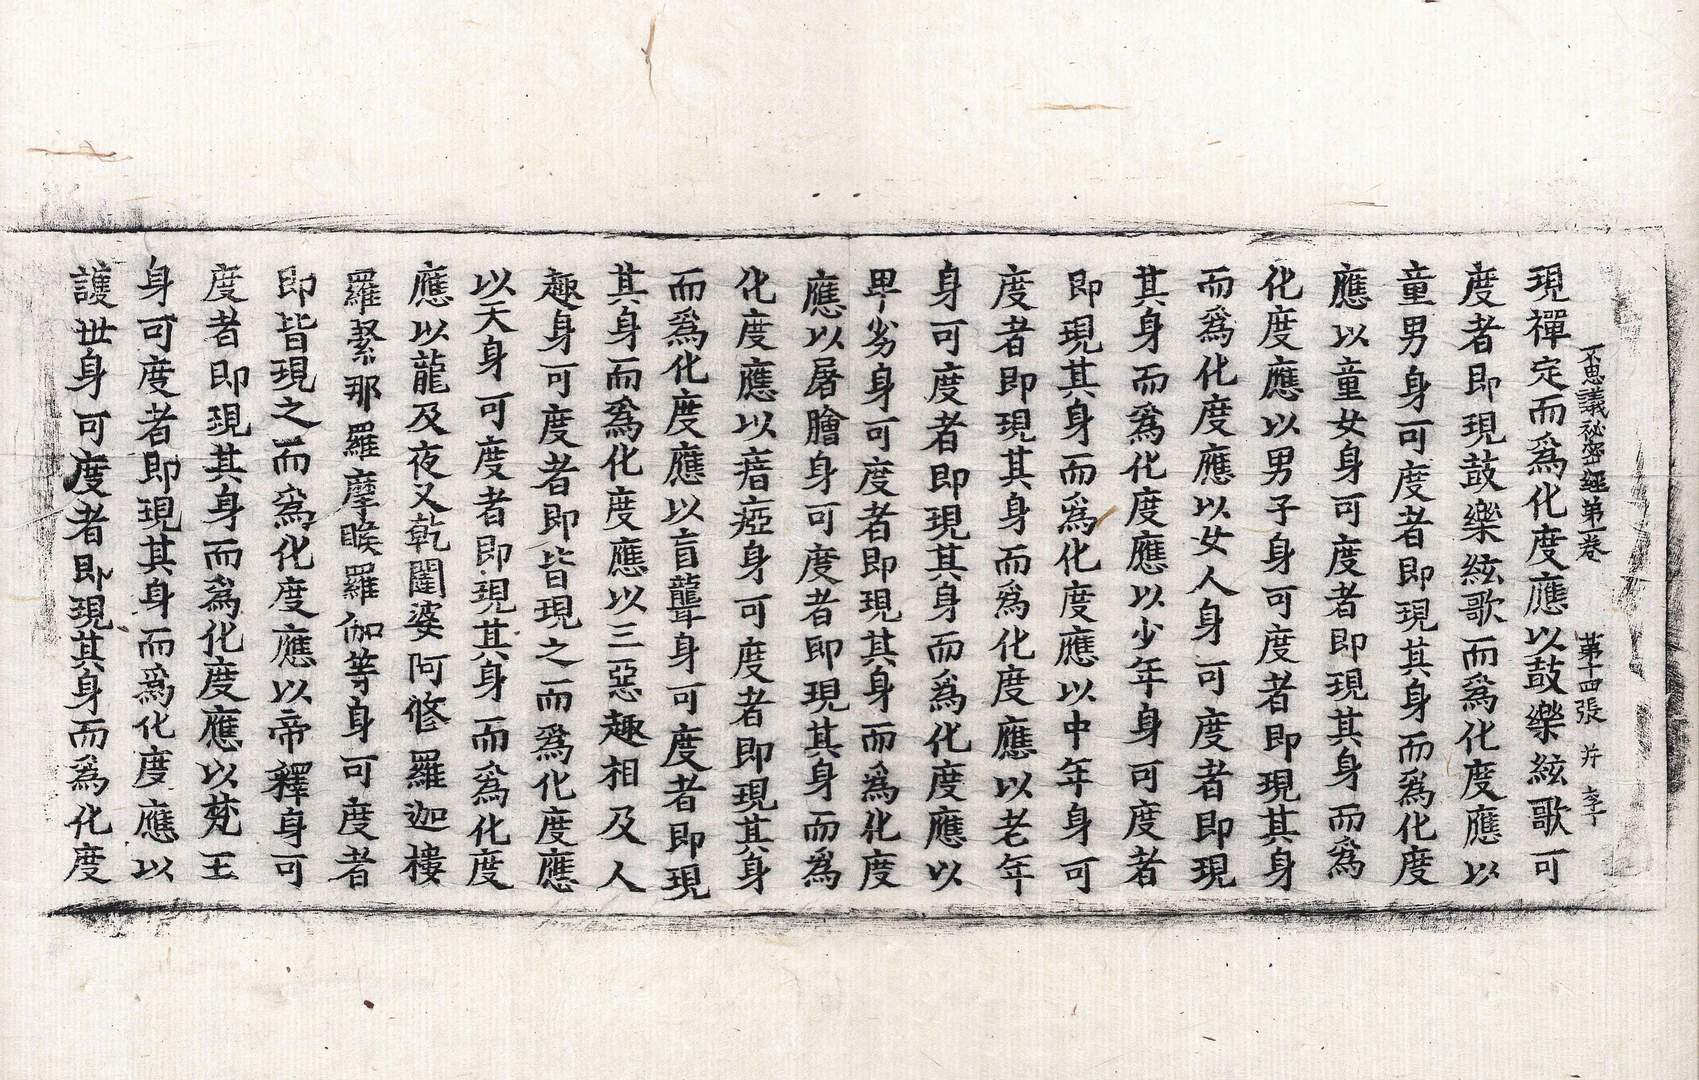 不思議祕密經第一卷 第十四張 并 李
現禪定而爲化度應以鼓樂絃歌可
度者即現鼓樂絃歌而爲化度應以
童男身可度者即現其身而爲化度
應以童女身可度者即現其身而爲
化度應以男子身可度者即現其身
而爲化度應以女人身可度者即現
其身而爲化度應以少年身可度者
即現其身而爲化度應以中年身可
度者即現其身而爲化度應以老年
身可度者即現其身而爲化度應以
卑劣身可度者即現其身而爲化度
應以屠膾身可度者即現其身而爲
化度應以瘖瘂身可度者即現其身
而爲化度應以盲聾身可度者即現
其身而爲化度應以三惡趣相及人
趣身可度者即皆現之而爲化度應
以天身可度者即現其身而爲化度
應以龍及夜叉乾闥婆阿修羅迦樓
羅緊那羅羅摩睺羅伽等身可度者
即皆現之而爲化度應以帝釋身可
度者即現其身而爲化度應以梵王
身可度者即現其身而爲化度應以
護世身可度者即現其身而爲化度